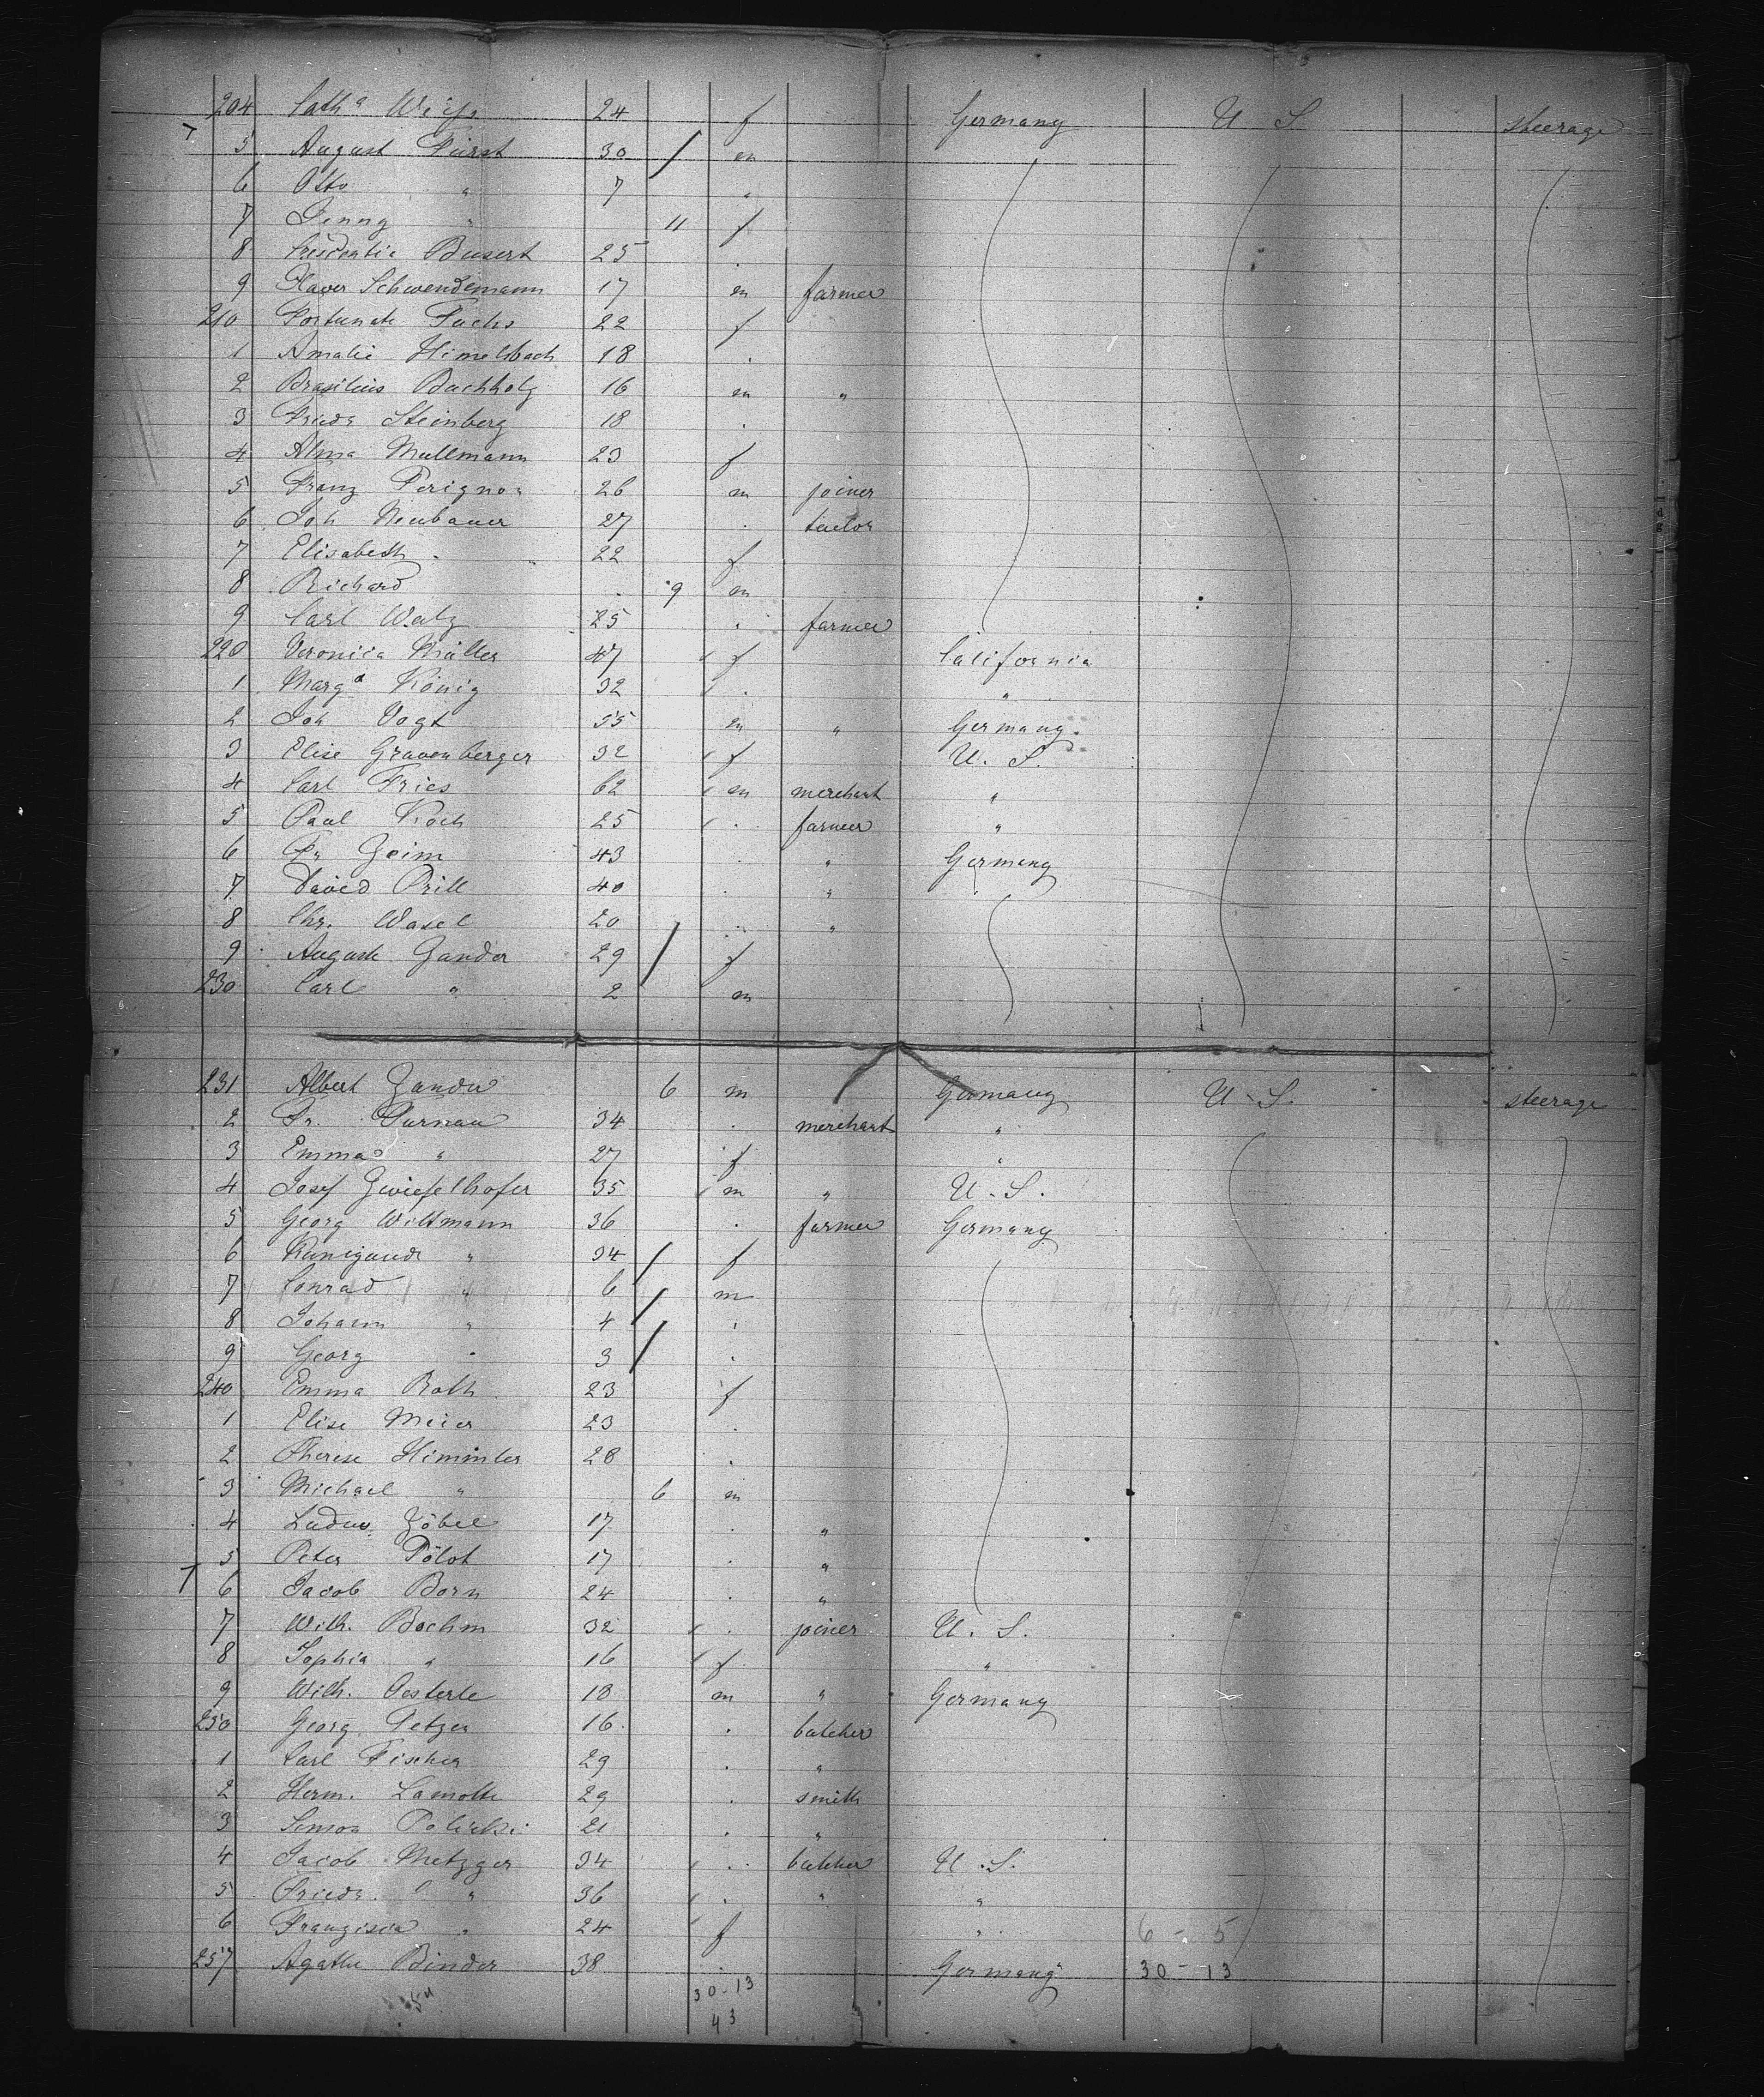 204 Cath a Weiss 24 f Germany U S steerage
5 August Fürst 30 m
6 Otto " 7 "
7 Jenny " 11 f
8 Crescentia Busert 25 .
9 Xaver Schwendemann 17 m farmer
210 Fortunate Fuchs 22 f
1 Amalie Himelsbach 18 .
2 Brasilius Buchholz 16 m "
3 Friedr Steinberg 18 .
4 Alma Mullmann 23 f
5 Franz Perignon 26 m joiner
6 Joh Neubauer 27 . tailor
7 Elisabeth " 22 f
8 Richard 9 m
9 Carl Walz 25 . farmer
220 Veronica Müller 47 f California
1 Marg a König 32 . "
2 Joh Vogt 55 m " Germany
3 Elise Gravenberger 32 f U. S.
4 Carl Fries 62 m merchant "
5 Paul Koch 25 . farmer "
6 Fr Geim 43 . " Germany
7 David Prill 40 . "
8 Chr. Wasel 20 . "
9 Auguste Zander 29 f
230 Carl " 2 m
231 Albert Zander 6 m Germany U. S. steerage
2 Fr. Purnau 34 . merchant "
3 Emma " 27 f "
4 Josef Zwiefelhofer 35 m " U. S.
5 Georg Wittmann 36 . farmer Germany
6 Kunigunde " 34 f
7 Conrad " 6 m
8 Johann " 4 .
9 Georg " 3 .
240 Emma Roth 23 f
1 Elise Meier 23 .
2 Therese Himmler 28 .
3 Michael " 6 m
4 Ludw. Zöbel 17 . "
5 Peter Pölot 17 . "
6 Jacob Born 24 . "
7 Wilh. Boehm 32 . joiner U. S.
8 Sophia " 16 f "
9 Wilh. Oesterle 18 m " Germany
250 Georg Petzer 16 . butcher
1 Carl Fischer 29 . "
2 Herm. Lamotte 29 . smith
3 Simon 21 . "
4 Jacob Metzger 34 . butcher U. S.
5 Friedr. " 36 . " "
6 Franzisca " 24 f " 6 - 5
257 Agathe Binder 38 . Germany 30 - 13
30 - 13
43